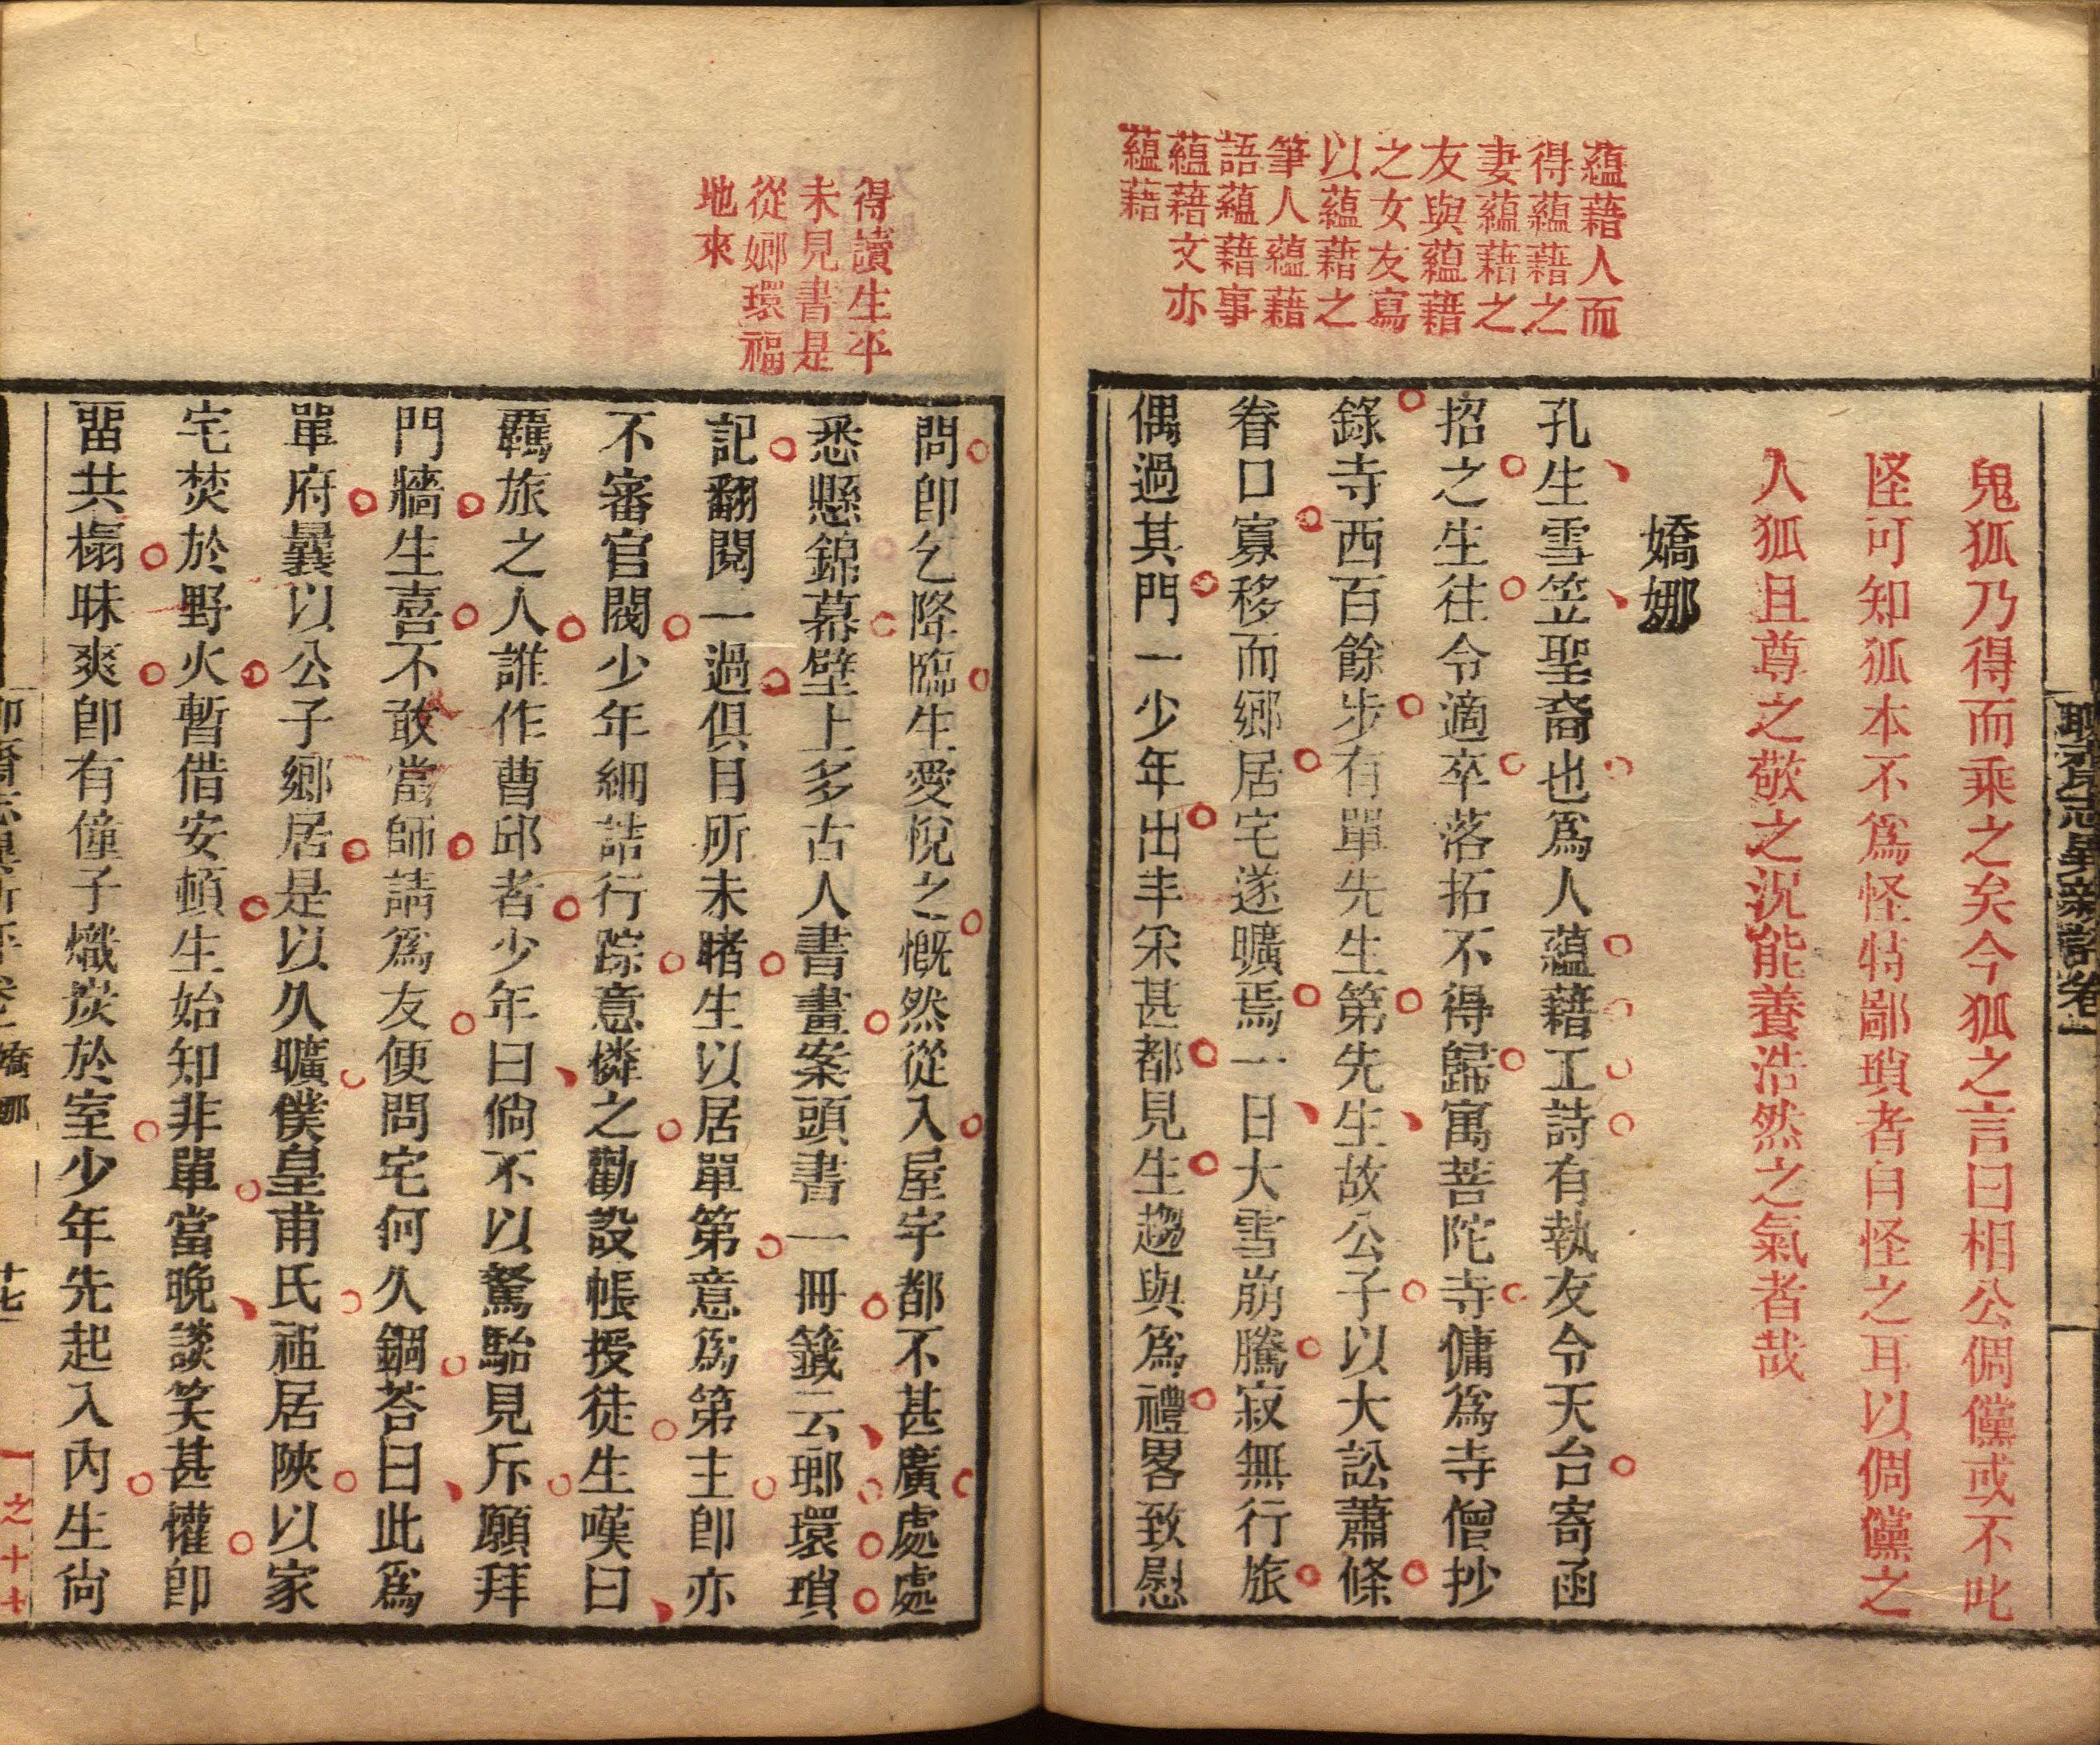 聊齋志異新評卷一
鬼狐乃得而乘之矣今狐之言曰相公倜儻或不叱
怪可知狐本不爲怪特鄙瑣者自怪之耳以倜儻之
人狐且尊之敬之況能養浩然之氣者哉
嬌娜
蘊藉人而
得蘊藉之
妻蘊藉之
友與蘊藉
之女友寫
以蘊藉之
筆人蘊藉
語蘊藉事
蘊藉文亦
蘊藉
孔生雪笠聖裔也爲人蘊藉工詩有執友令天台寄函
招之生往令適卒落拓不得歸寓菩陀寺傭爲寺僧抄
錄寺西百餘步有單先生第先生故公子以大訟蕭條
眷口寡移而鄉居宅遂曠焉一日大雪崩騰寂無行旅
偶過其門一少年出丰采甚都見生趨與爲禮畧致慰
得讀生平
未見書是
從嫏環福
地來
問卽乞降臨生愛悅之慨然從入屋宇都不甚廣處處
悉懸錦幕壁上多古人書畫案頭書一冊籖云瑯環瑣
記翻閱一過俱目所未睹生以居單第意爲第主卽亦
不審官閥少年細詰行踪意憐之勸設帳授徒生嘆曰
羈旅之人誰作曹邱者少年曰倘不以駑駘見斥願拜
門牆生喜不敢當師請爲友便問宅何久錮荅曰此爲
單府曩以公子鄉居是以久曠僕皇甫氏祖居陝以家
宅焚於野火暫借安頓生始知非單當晚談笑甚懽卽
畱共榻昧爽卽有僮子熾炭於室少年先起入內生尙
嬌娜
十七